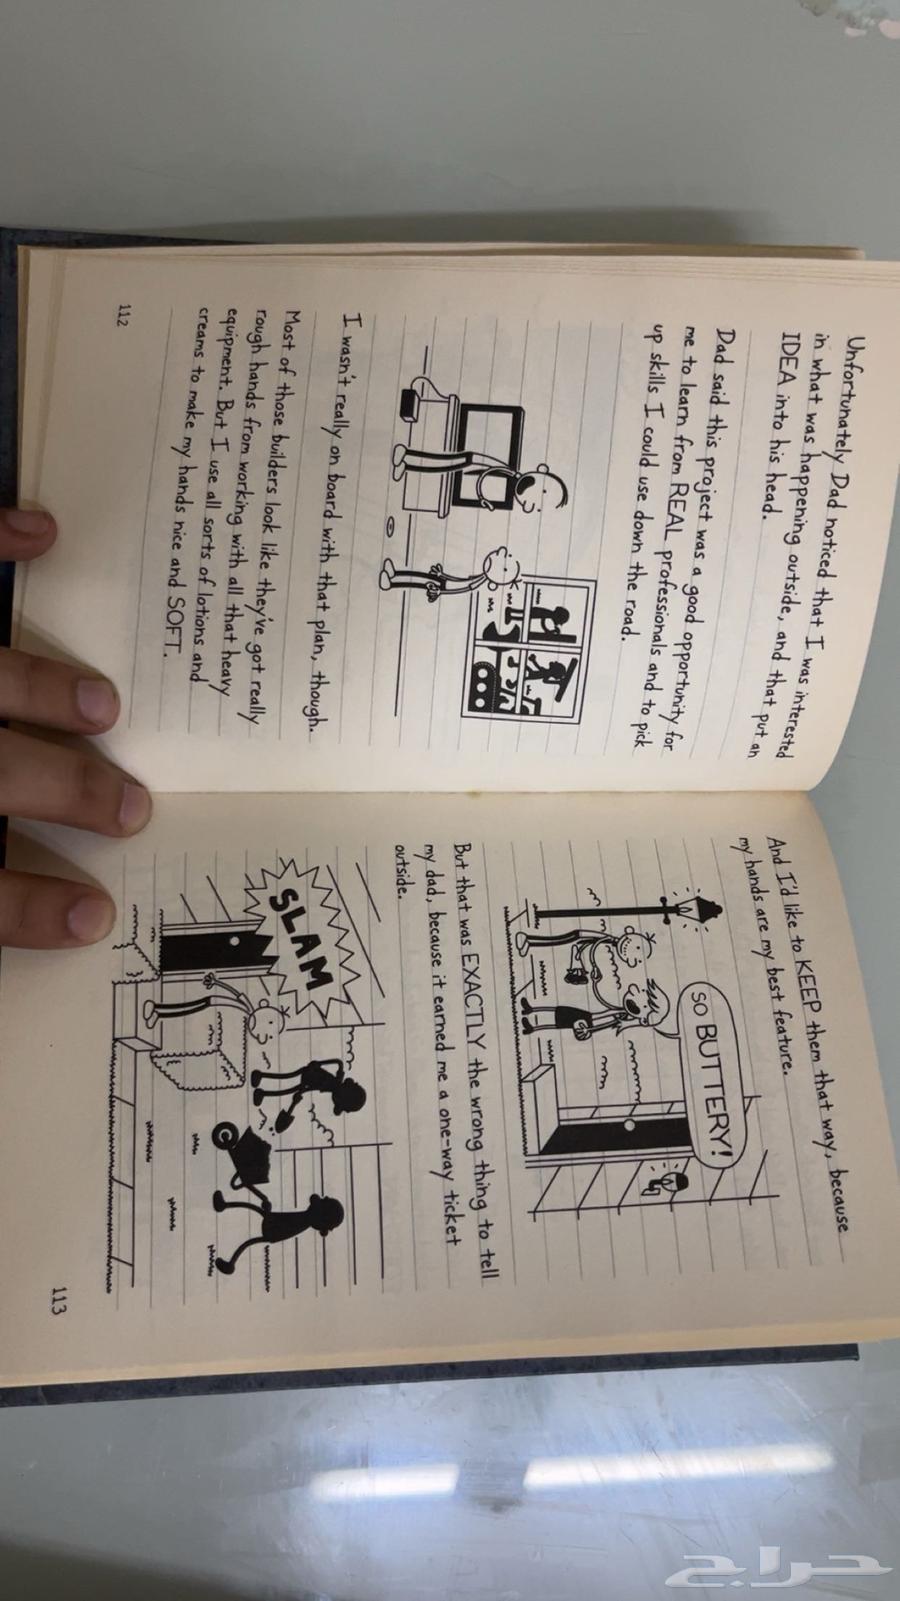 Unfortunately Dad noticed that I was interested
in what was happening outside, and that put an
IDEA into his head.
Dad said this project was a good opportunity for
me to learn from REAL professionals and to pick
up skills I could use down the road.
I wasn't really on board with that plan, though.
Most of those builders look like they've got really
rough hands from working with all that heavy
equipment. But I use all sorts of lotions and
creams to make my hands nice and SOFT.
112
And I'd like to KEEP them that way, because
my hands are my best feature.
SO BUTTERY!
But that was EXACTLY the wrong thing to tell
my dad, because it earned me a one-way ticket
outside.
SLAM
113
حراج